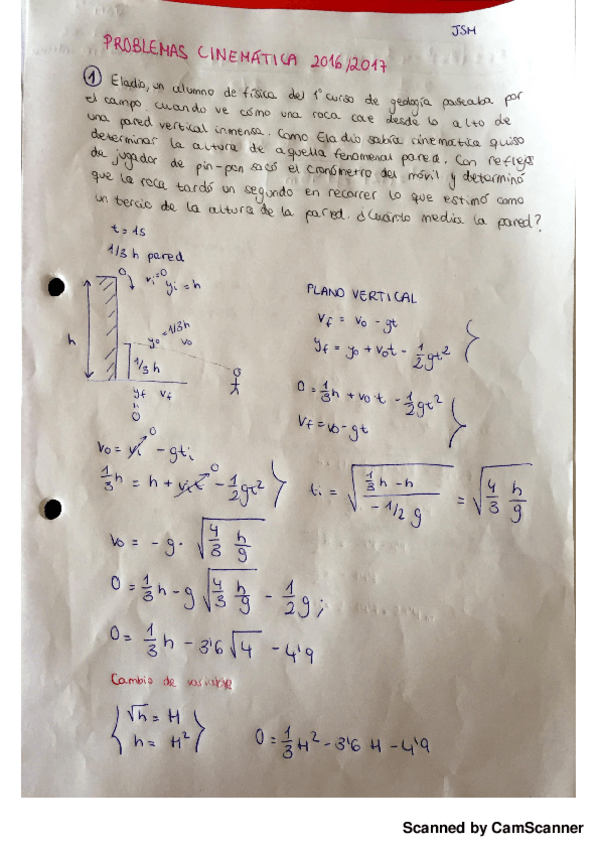 JSM
PROBLEMAS CINEMÁTICA 2016/2017
① Eladio, un alumno de física del 1º curso de geología paseaba por
el campo cuando ve cómo una roca cae desde lo alto de
una pared vertical inmensa. Como Eladio sabía cinematica quiso
determinar la altura de aquella fenomenal pared. Con reflejos
de jugador de pin-pon sacó el cronómetro del móvil y determinó
que la roca tardó un segundo en recorrer lo que estimó como
un tercio de la altura de la pared. ¿Cuánto medía la pared?
t = 1s
1/3 h pared
vi=0
yi = h
h
y0 = 1/3h v0
1/3 h
yf vf
0
PLANO VERTICAL
Vf = v0 - gt
yf = y0 + v0t - 1/2 gt²
0 = 1/3 h + v0 t - 1/2 gt²
Vf = v0 - gt
v0 = vi 0 - gti
1/3 h = h + vit 0 - 1/2 gt²
ti = √((1/3 h - h)/(-1/2 g)) = √(4/3 h/g)
v0 = -g · √(4/3 h/g)
0 = 1/3 h - g √(4/3 h/g) - 1/2 g;
0 = 1/3 h - 3'6 √4 - 4'9
Cambio de variable
√h = H
h = H²
0 = 1/3 H² - 3'6 H - 4'9
Scanned by CamScanner